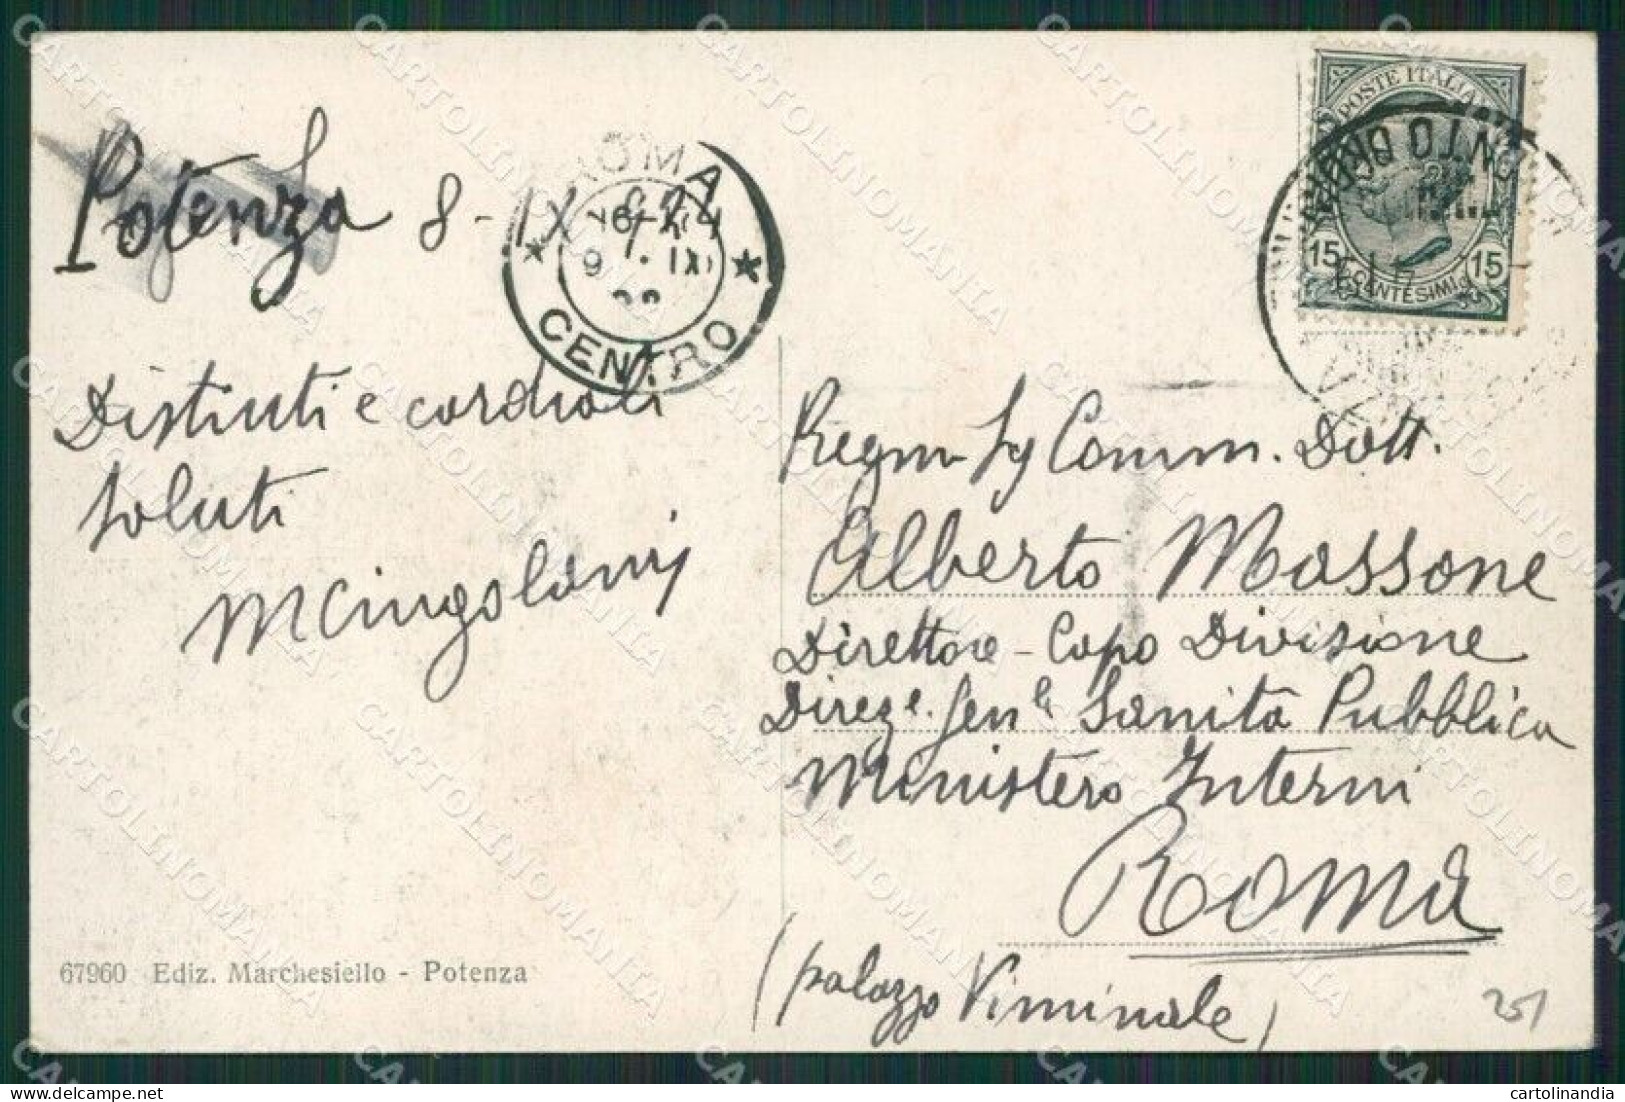 Potenza 8-IX
ROMA
CENTRO
POSTE ITALIANE
15 CENTESIMI 15
Distinti e cordiali
saluti
MCingolani
Pregmo Sg Comm. Dott.
Alberto Massone
Direttore - Capo Divisione
Direze. Genle Sanità Pubblica
Ministero Interni
Roma
(palazzo Viminale)
67960 Ediz. Marchesiello - Potenza
251
CARTOLINOMANIA
cartolinandia